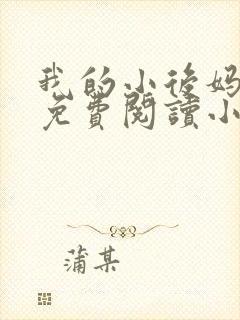 我的小後妈
免費閱讀小
蒲某